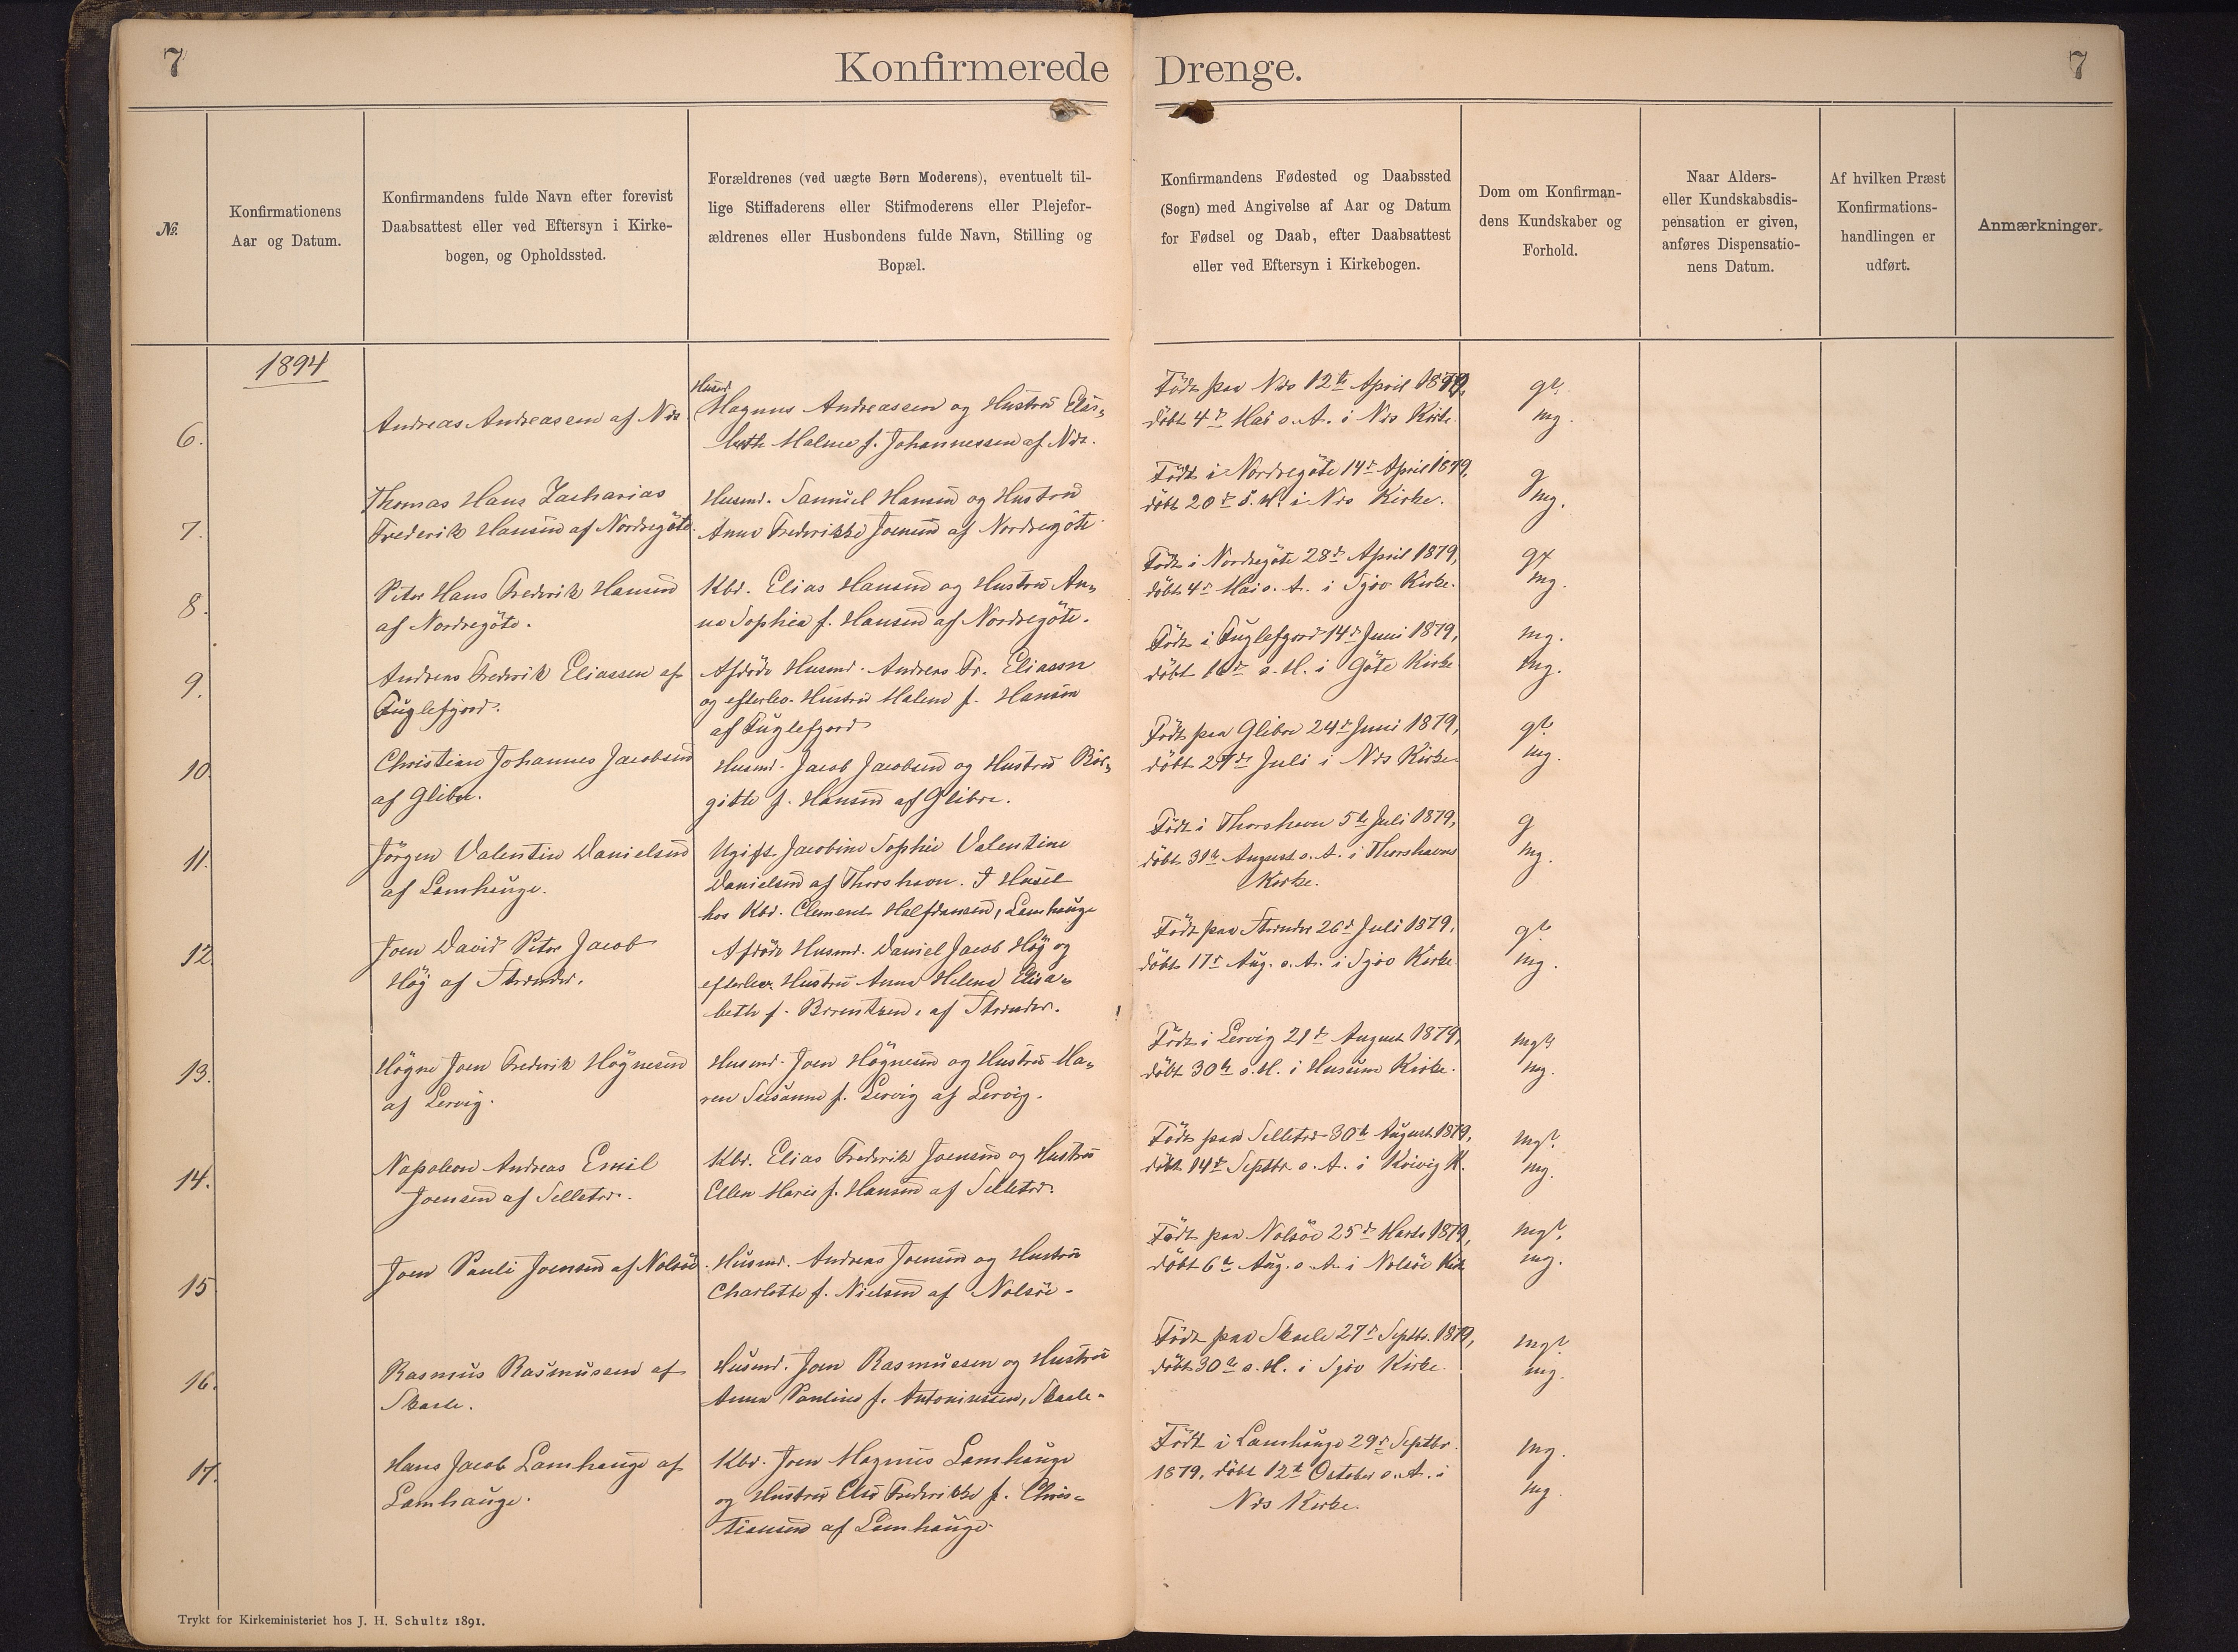 7
Konfirmerede Drenge.
7
№.
Konfirmationens
Aar og Datum.
Konfirmandens fulde Navn efter forevist
Daabsattest eller ved Eftersyn i Kirke-
bogen, og Opholdssted.
Forældrenes (ved uægte Børn Moderens), eventuelt til-
lige Stiffaderens eller Stifmoderens eller Plejefor-
ældrenes eller Husbondens fulde Navn, Stilling og
Bopæl.
Konfirmandens Fødested og Daabssted
(Sogn) med Angivelse af Aar og Datum
for Fødsel og Daab, efter Daabsattest
eller ved Eftersyn i Kirkebogen.
Dom om Konfirman-
dens Kundskaber og
Forhold.
Naar Alders-
eller Kundskabsdis-
pensation er given,
anføres Dispensatio-
nens Datum.
Af hvilken Præst
Konfirmations-
handlingen er
udført.
Anmærkninger.
1894
6.
Andreas Andreasen af Nes
Husmd.
Magnus Andreasen og Hustrü Elis-
beth Malene f. Johannessen af Nes.
Födt paa Nes 12te April 1879,
döbt 4de Mai s. A. i Nes Kirke.
g?
mg.
7.
Thomas Hans Zacharias
Frederik Hansen af Nordregöte.
Husmd. Samüel Hansen og Hustrü
Anna Frederikke Joensen af Nordregöte
Födt i Nordregöte 14de April 1879,
döbt 20de s. M. i Nes Kirke.
g
mg.
8.
Peter Hans Frederik Hansen
af Nordregöte.
Kbd. Elias Hansen og Hustrü An-
na Sophia f. Hansen af Nordregöte.
Födt i Nordregöte 28de April 1879,
döbt 4de Mai s. A. i Sjov Kirke.
g×
mg.
9.
Andreas Frederik Eliassen af
Füglefjord.
Afdöde Husmd. Andreas Fr. Eliassen
og efterlev. Hustrü Malene f. Hansen
af Füglefjord
Födt i Füglefjord 14de Juni 1879,
döbt 16de s. M. i Göte Kirke
mg.
mg.
10.
Christian Johannes Jacobsen
af Glibre.
Husmd. Jacob Jacobsen og Hustrü Bir-
gitte f. Hansen af Glibre.
Födt paa Glibre 24de Juni 1879,
döbt 27de Juli i Nes Kirke
g?
mg.
11.
Jörgen Valentin Danielsen
af Lamhauge.
Ugift Jacobine Sophie Valentine
Danielsen af Thorshavn. I Huset
hos Kbd. Clement Halfdansen, Lamhauge
Födt i Thorshavn 5te Juli 1879,
döbt 31te August s. A. i Thorshavns
Kirke.
g
mg.
12.
Joen David Peter Jacob
Höj af Strender.
Afdöde Husmd. Daniel Jacob Höj og
efterlev. Hustrü Anna Helene Elisa-
beth f. Berentsen, af Strender.
Födt paa Strender 26de Juli 1879,
döbt 17de Aug. s. A. i Sjov Kirke
g?
mg.
13.
Högne Joen Frederik Högnesen
af Lervig.
Husmd. Joen Högnesen og Hustrü Ma-
ren Susanne f. Lervig af Lervig.
Födt i Lervig 21de August 1879,
döbt 30te s. M. i Husum Kirke.
mg?
mg.
14.
Napoleon Andreas Emil
Joensen af Selletræ.
Kbd. Elias Frederik Joensen og Hustrü
Ellen Marie f. Hansen af Selletræ.
Födt paa Selletræ 30te August 1879,
döbt 14de Septbr. s. A. i Kvivig K.
mg?.
mg.
15
Joen Pauli Joensen af Nolsöe.
Husmd. Andreas Joensen og Hustrü
Charlotte f. Nielsen af Nolsöe.
Födt paa Nolsöe 25de Marts 1879,
döbt 6te Aug. s. A. i Nolsöe Kirk
mg?.
mg.
16.
Rasmus Rasmussen af
Skaale.
Husmd. Joen Rasmussen og Hustrü
Anna Pauline f. Antoniussen, Skaale.
Födt paa Skaale 27de Septbr. 1879,
döbt 30te s. M. i Sjov Kirke.
mg?
mg.
17.
Hans Jacob Lamhauge af
Lamhauge.
Kbd. Joen Magnus Lamhauge
og Hustrü Else Frederikke f. Chris-
tiansen af Lamhauge.
Födt i Lamhauge 29de Septbr.
1879, döbt 12te October s. A. i
Nes Kirke.
mg.
mg.
Trykt for Kirkeministeriet hos J. H. Schultz 1891.